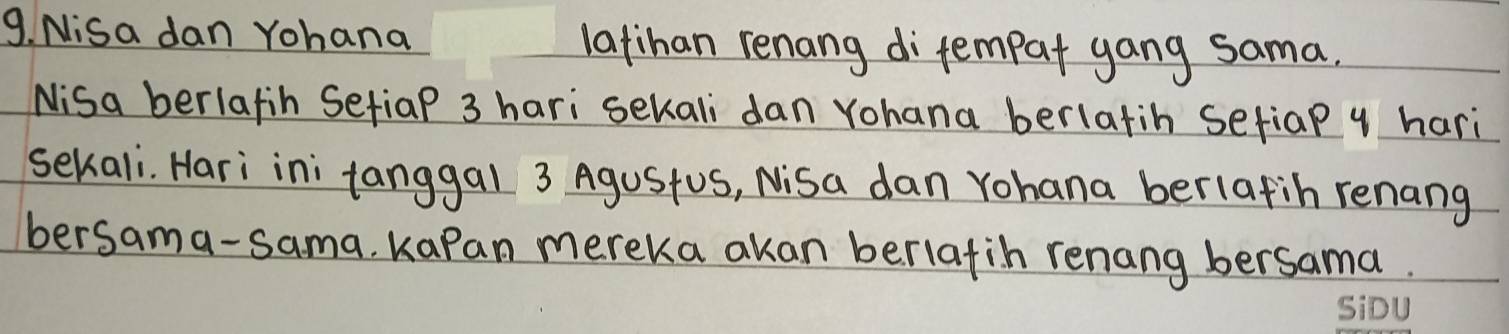 9. Nisa dan Yohana latihan renang di tempat yang sama.
Nisa berlatih setiap 3 hari sekali dan Yohana berlatih setiap 4 hari
sekali. Hari ini tanggal 3 Agustus, Nisa dan Yohana berlatih renang
bersama-sama. Kapan mereka akan berlatih renang bersama.
SiDU